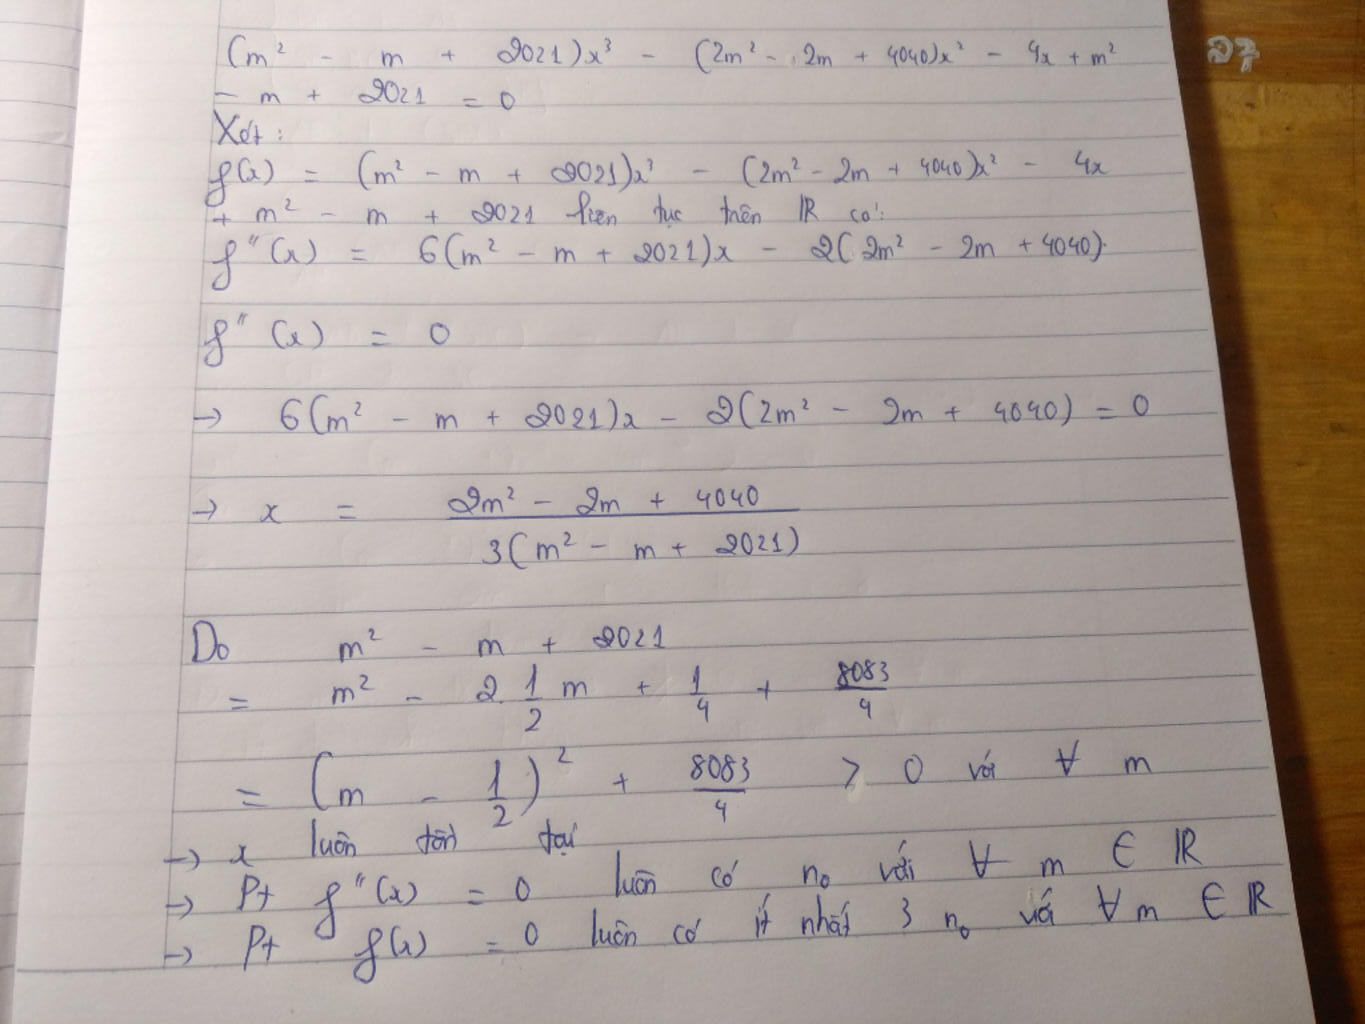 (m² - m + 2021)x³ - (2m² - 2m + 4040)x² - 4x + m²
- m + 2021 = 0
Xét:
f(x) = (m² - m + 2021)x³ - (2m² - 2m + 4040)x² - 4x
+ m² - m + 2021 liên tục trên ℝ có:
f''(x) = 6(m² - m + 2021)x - 2(2m² - 2m + 4040).
f''(x) = 0
→ 6(m² - m + 2021)x - 2(2m² - 2m + 4040) = 0
→ x = (2m² - 2m + 4040) / 3(m² - m + 2021)
Do m² - m + 2021
= m² - 2.1/2 m + 1/4 + 8083/4
= (m - 1/2)² + 8083/4 > 0 với ∀ m
→ x luôn tồn tại
→ Pt f''(x) = 0 luôn có n₀ với ∀ m ∈ ℝ
→ Pt f(x) = 0 luôn có ít nhất 3 n₀ với ∀ m ∈ ℝ
27